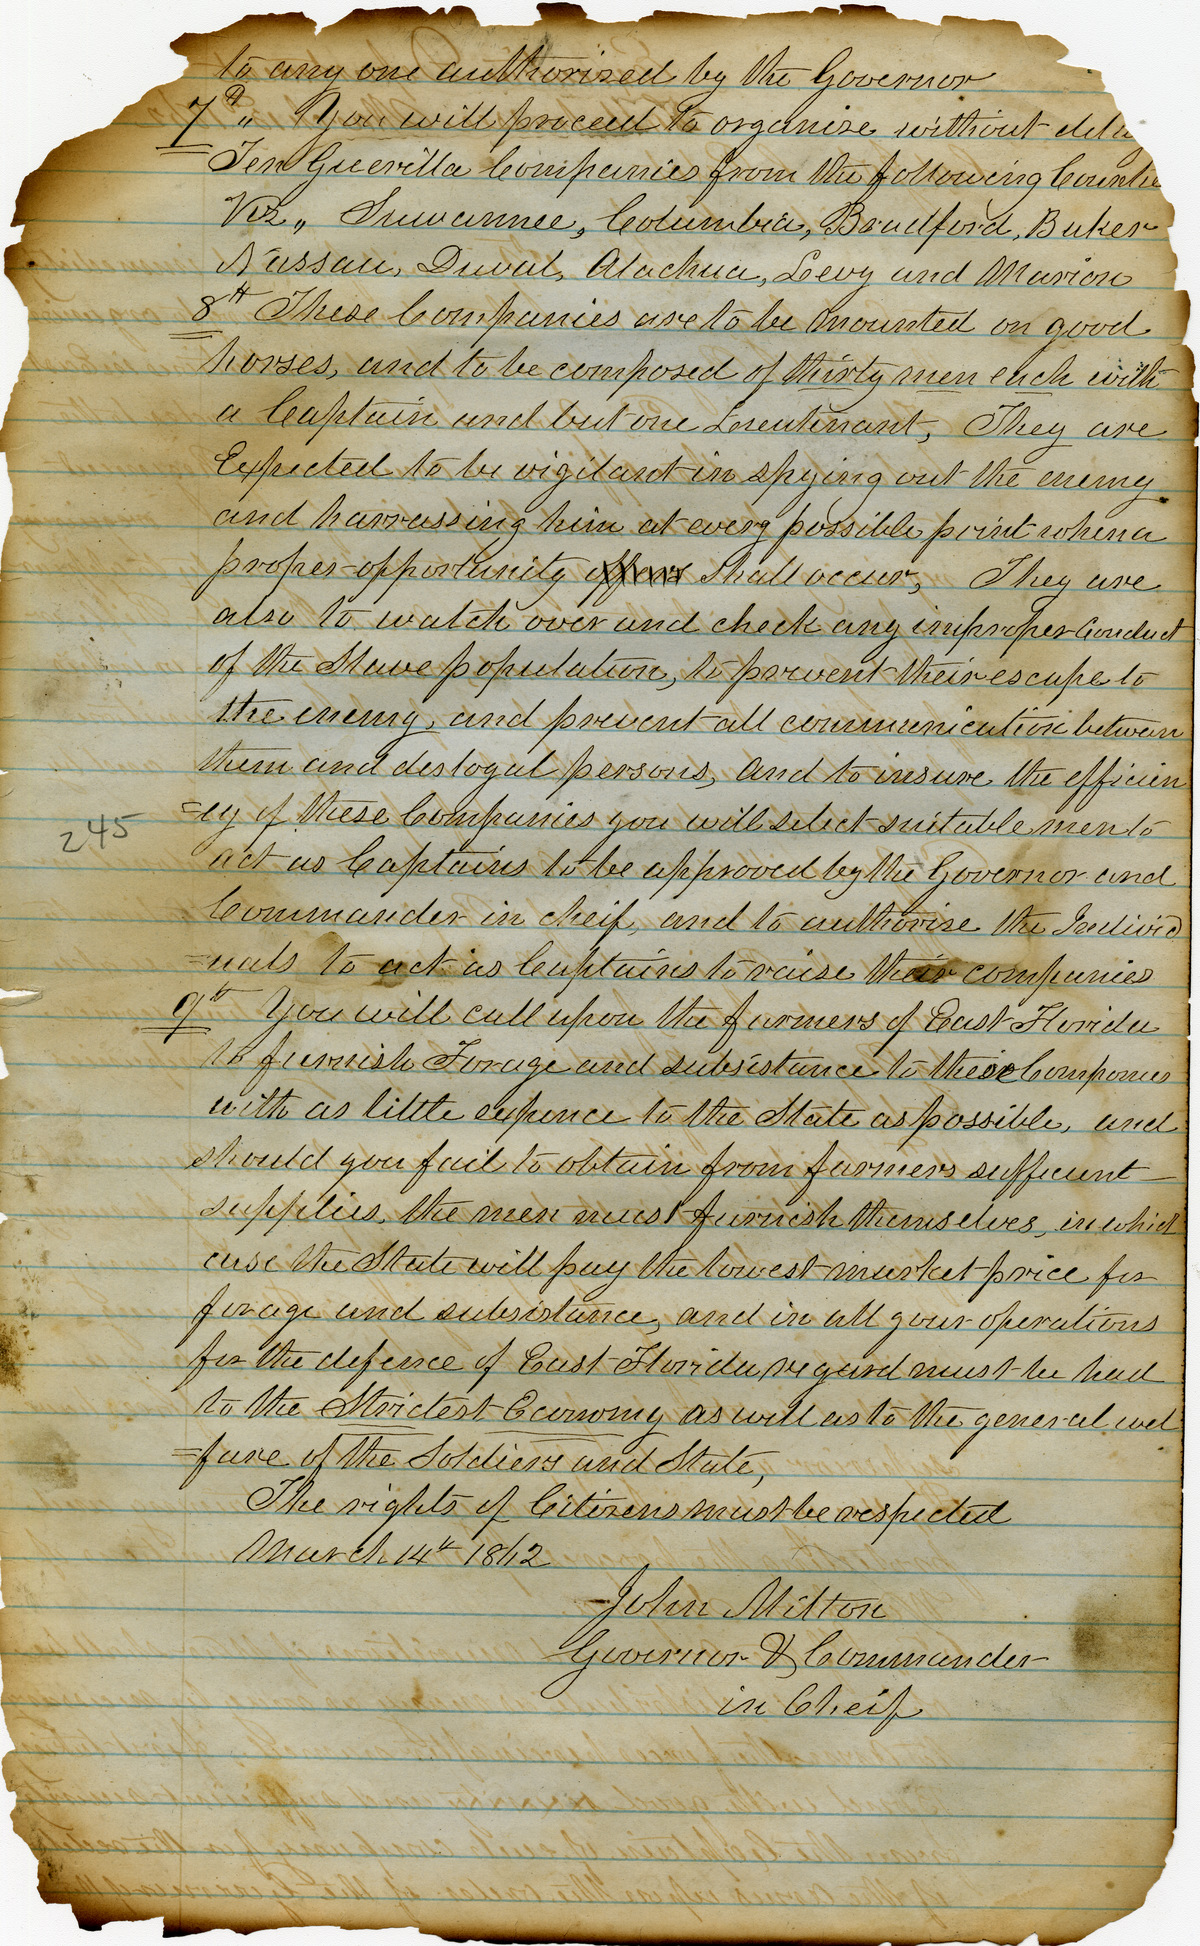 to any one authorised by the Governor
7th „ You will proceed to organise without delay
Ten Guerilla Companies from the following Countie
Viz „ Suwannee, Columbia, Bradford, Baker
Nassau, Duval, Alachua, Levy and Marion
8th These Companies are to be mounted on good
horses, and to be composed of thirty men each with
a Captain and but one Lieutenant, They are
Expected to be vigilant in spying out the enemy
and harrassing him at every possible point when a
proper opportunity shall occur, They are
also to watch over and check any improper conduct
of the Slave population, to prevent their escape to
the enemy, and prevent all communication between
them and disloyal persons, and to insure the efficien
=cy of these Companies you will select suitable men to
act as Captains to be approved by the Governor and
Commander in cheif, and to authorise the Individ
=uals to act as Captains to raise their companies
9th You will call upon the farmers of East Florida
to furnish Forage and subsistance to these Companies
with as little expence to the State as possible, and
should you fail to obtain from farmers sufficient
supplies, the men must furnish themselves, in which
case the State will pay the lowest market price for
forage and subsistance, and in all your operations
for the defence of East Florida regard must be had
to the Strictest Economy as well as to the general wel
=fare of the Soldiers and State,
The rights of Citizens must be respected
March 14th 1862
John Milton
Governor & Commander
in Cheif
245